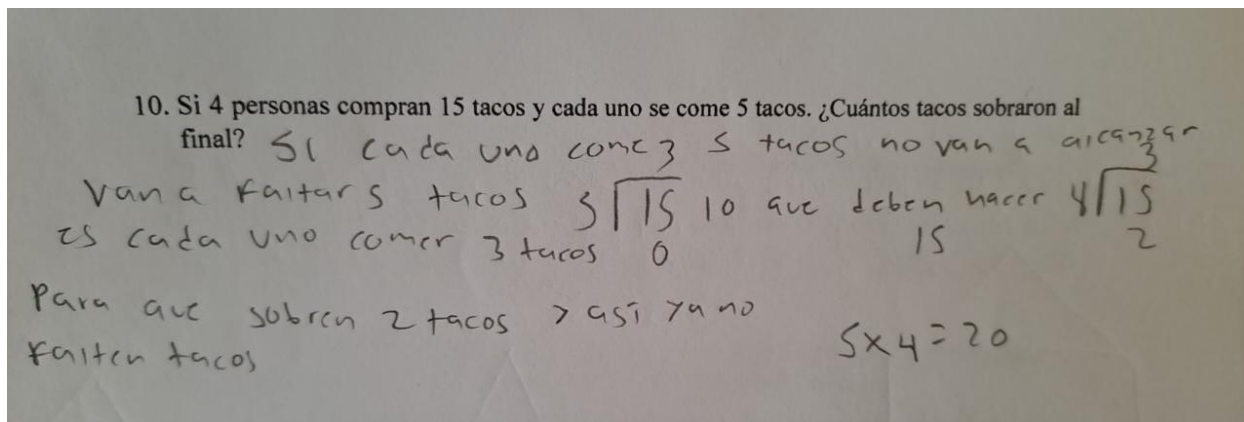 10. Si 4 personas compran 15 tacos y cada uno se come 5 tacos. ¿Cuántos tacos sobraron al
final? Si cada uno come 5 tacos no van a alcanzar
van a faltar 5 tacos 5⟌15 lo que deben hacer 4⟌15
3 3
es cada uno comer 3 tacos 0 15 2
Para que sobren 2 tacos y así ya no
falten tacos
5x4=20